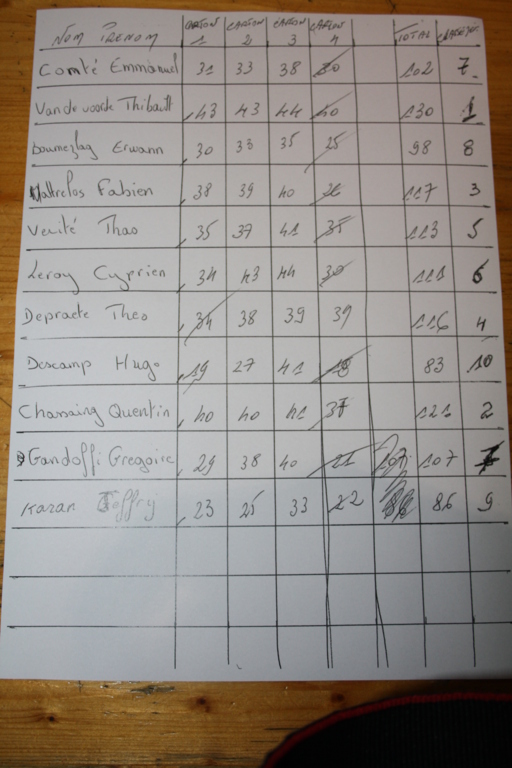 NOM PRENOM CARTON 1 CARTON 2 CARTON 3 CARTON 4 TOTAL
Comté Emmanuel 31 33 38 30 102 7
Van de voorde Thibault 43 43 44 40 130 1
Doumezlag Erwann 30 33 35 25 98 8
Wattrelos Fabien 38 39 40 26 117 3
Verité Thao 35 37 41 35 113 5
Leroy Cyprien 34 43 44 30 111 6
Depraete Theo 34 38 39 39 116 4
Descamp Hugo 19 27 41 18 83 10
Chassaing Quentin 40 40 41 37 121 2
Gandoffi Gregoire 29 38 40 21 107 107 7
Kazan Joffrij 23 25 33 22 86 9